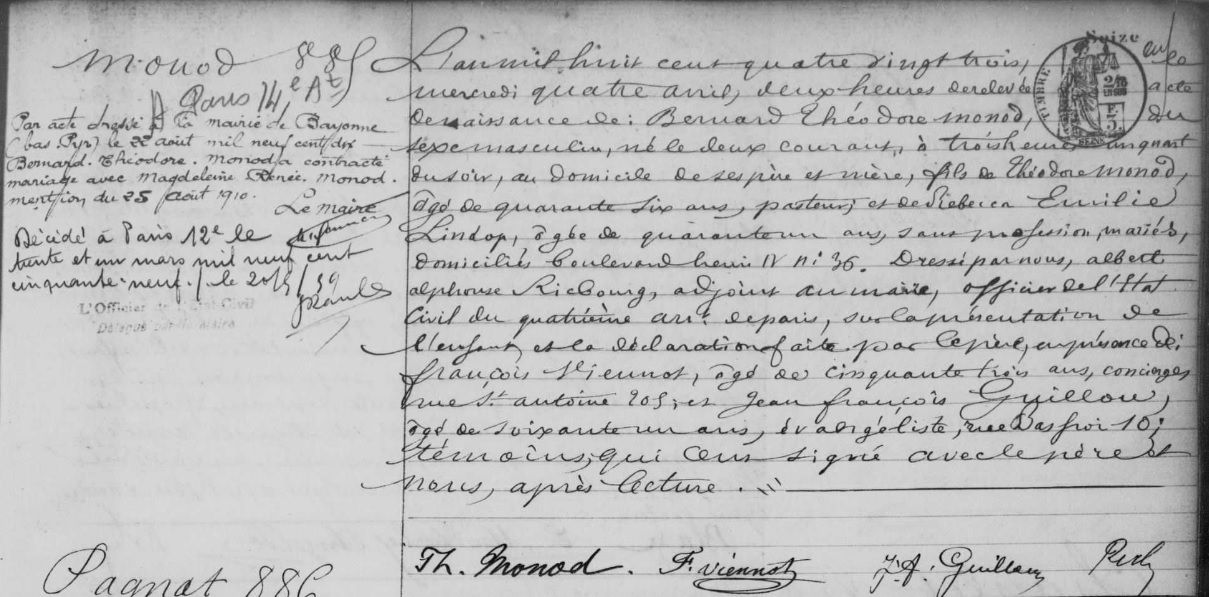 Monod 885
Paris 14e Art
Par acte dressé à la mairie de Bayonne
(bas Pyr) le 22 août mil neuf cent dix
Bernard. Théodore. Monod a contracté
mariage avec Magdeleine Renée. Monod.
mention du 25 Août 1910.
Le maire
Décédé à Paris 12e le
trente et un mars mil neuf cent
cinquante-neuf. / le
L'Officier de l'Etat-Civil
Délégué par le maire
L'an mil huit cent quatre vingt trois,
mercredi quatre avril, deux heures de relevée
acte
de naissance de: Bernard Théodore monod, du
sexe masculin, né le deux courant, à trois heures un quart
du soir, au domicile de ses père et mère, fils de Théodore monod,
âgé de quarante six ans, pasteur, et de Rebecca Emilie
Lindop, âgée de quarante un ans, sans profession, mariés,
domiciliés boulevard henri IV n: 36. Dressé par nous, albert
alphonse Riebourg, adjoint au maire, officier de l'Etat
Civil du quatrième arrt de paris, sur la présentation de
l'enfant, et la déclaration faite par le père, en présence de:
françois Viennot, âgé de cinquante trois ans, concierge,
rue St antoine 205; et Jean françois Guillou,
âgé de soixante un ans, évangéliste, rue Dasfroi 10;
témoins, qui ont signé avec le père et
nous, après lecture
TIMBRE
Th. Monod. F. viennot J. F. Guillou
Pagnat 886